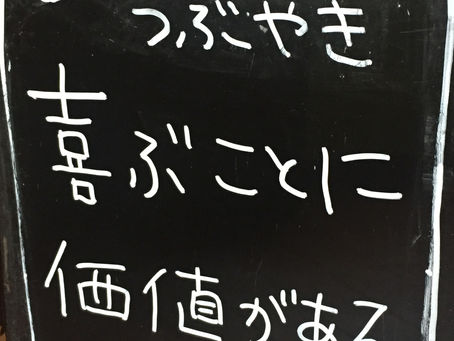 つぶやき
喜ぶことに
価値がある